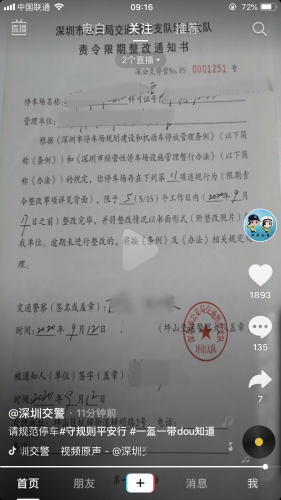 中国联通
09:16
72%
直播
坪山
关注
推荐
责令限期整改通知书
2个直播
深公交停管No.PS 0001251 号
停车场名称:
许可证号
管理单位:
根据《深圳市停车场规划建设和机动车停放管理条例》(以下简
称《条例》)和《深圳市经营性停车场设施管理暂行办法》(以下简
称《办法》)的规定,你停车场存在下列第11项违规行为(限期责
令整改事项详见背面),限于5(5/15)个工作日内(2020年9月
17日之前)整改完毕,并将整改情况以书面形式(附整改照片)
我单位。逾期未进行整改的,将按《条例》及《办法》相关规定处
理。
交通警察(签名或盖章):
时间:2020年9月12日
(坪山交通警察大队盖章)
坪山大队
被通知人(单位)签字(盖章)
时间2020年9月12日
1893
135
7
@深圳交警 · 11分钟前
请规范停车#守规则平安行 #一盔一带dou知道
圳交警 视频原声 - @深圳
首页
朋友
消息
我